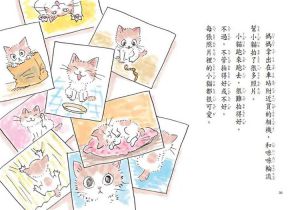 媽媽拿出在車站附近買的相機，和咪咪輪流
幫小貓拍了很多照片。
小貓跑來跑去，很難拍得好。
不過，不管拍得好或不好，
每張照片裡的小貓都很可愛。